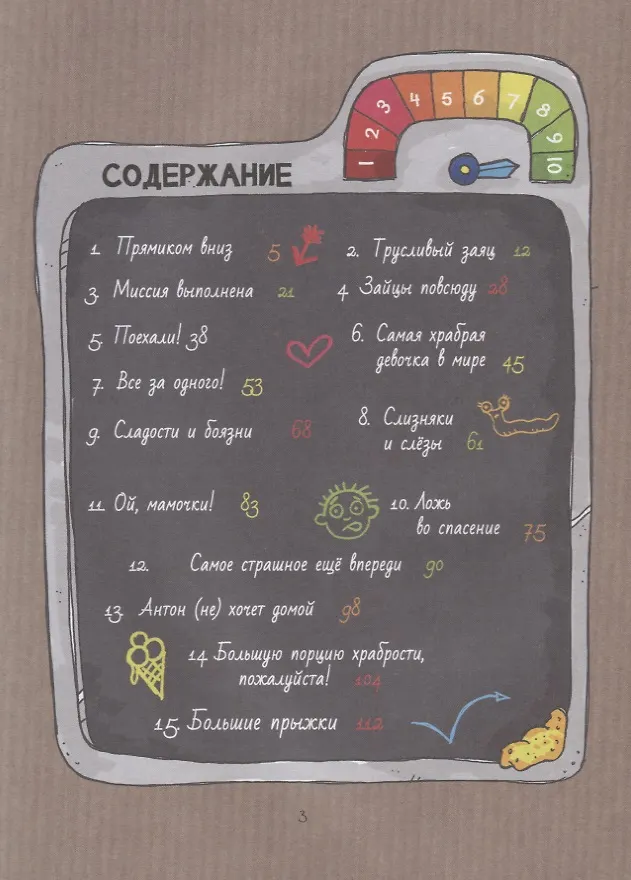 СОДЕРЖАНИЕ
1 2 3 4 5 6 7 8 9 10
1. Прямиком вниз 5
2. Трусливый заяц 12
3. Миссия выполнена 21
4 Зайцы повсюду 28
5. Поехали! 38
6. Самая храбрая
девочка в мире 45
7. Все за одного! 53
8. Слизняки
и слёзы 61
9. Сладости и боязни 68
10. Ложь
во спасение 75
11. Ой, мамочки! 83
12. Самое страшное ещё впереди 90
13. Антон (не) хочет домой 98
14 Большую порцию храбрости,
пожалуйста! 104
15. Большие прыжки 112
3